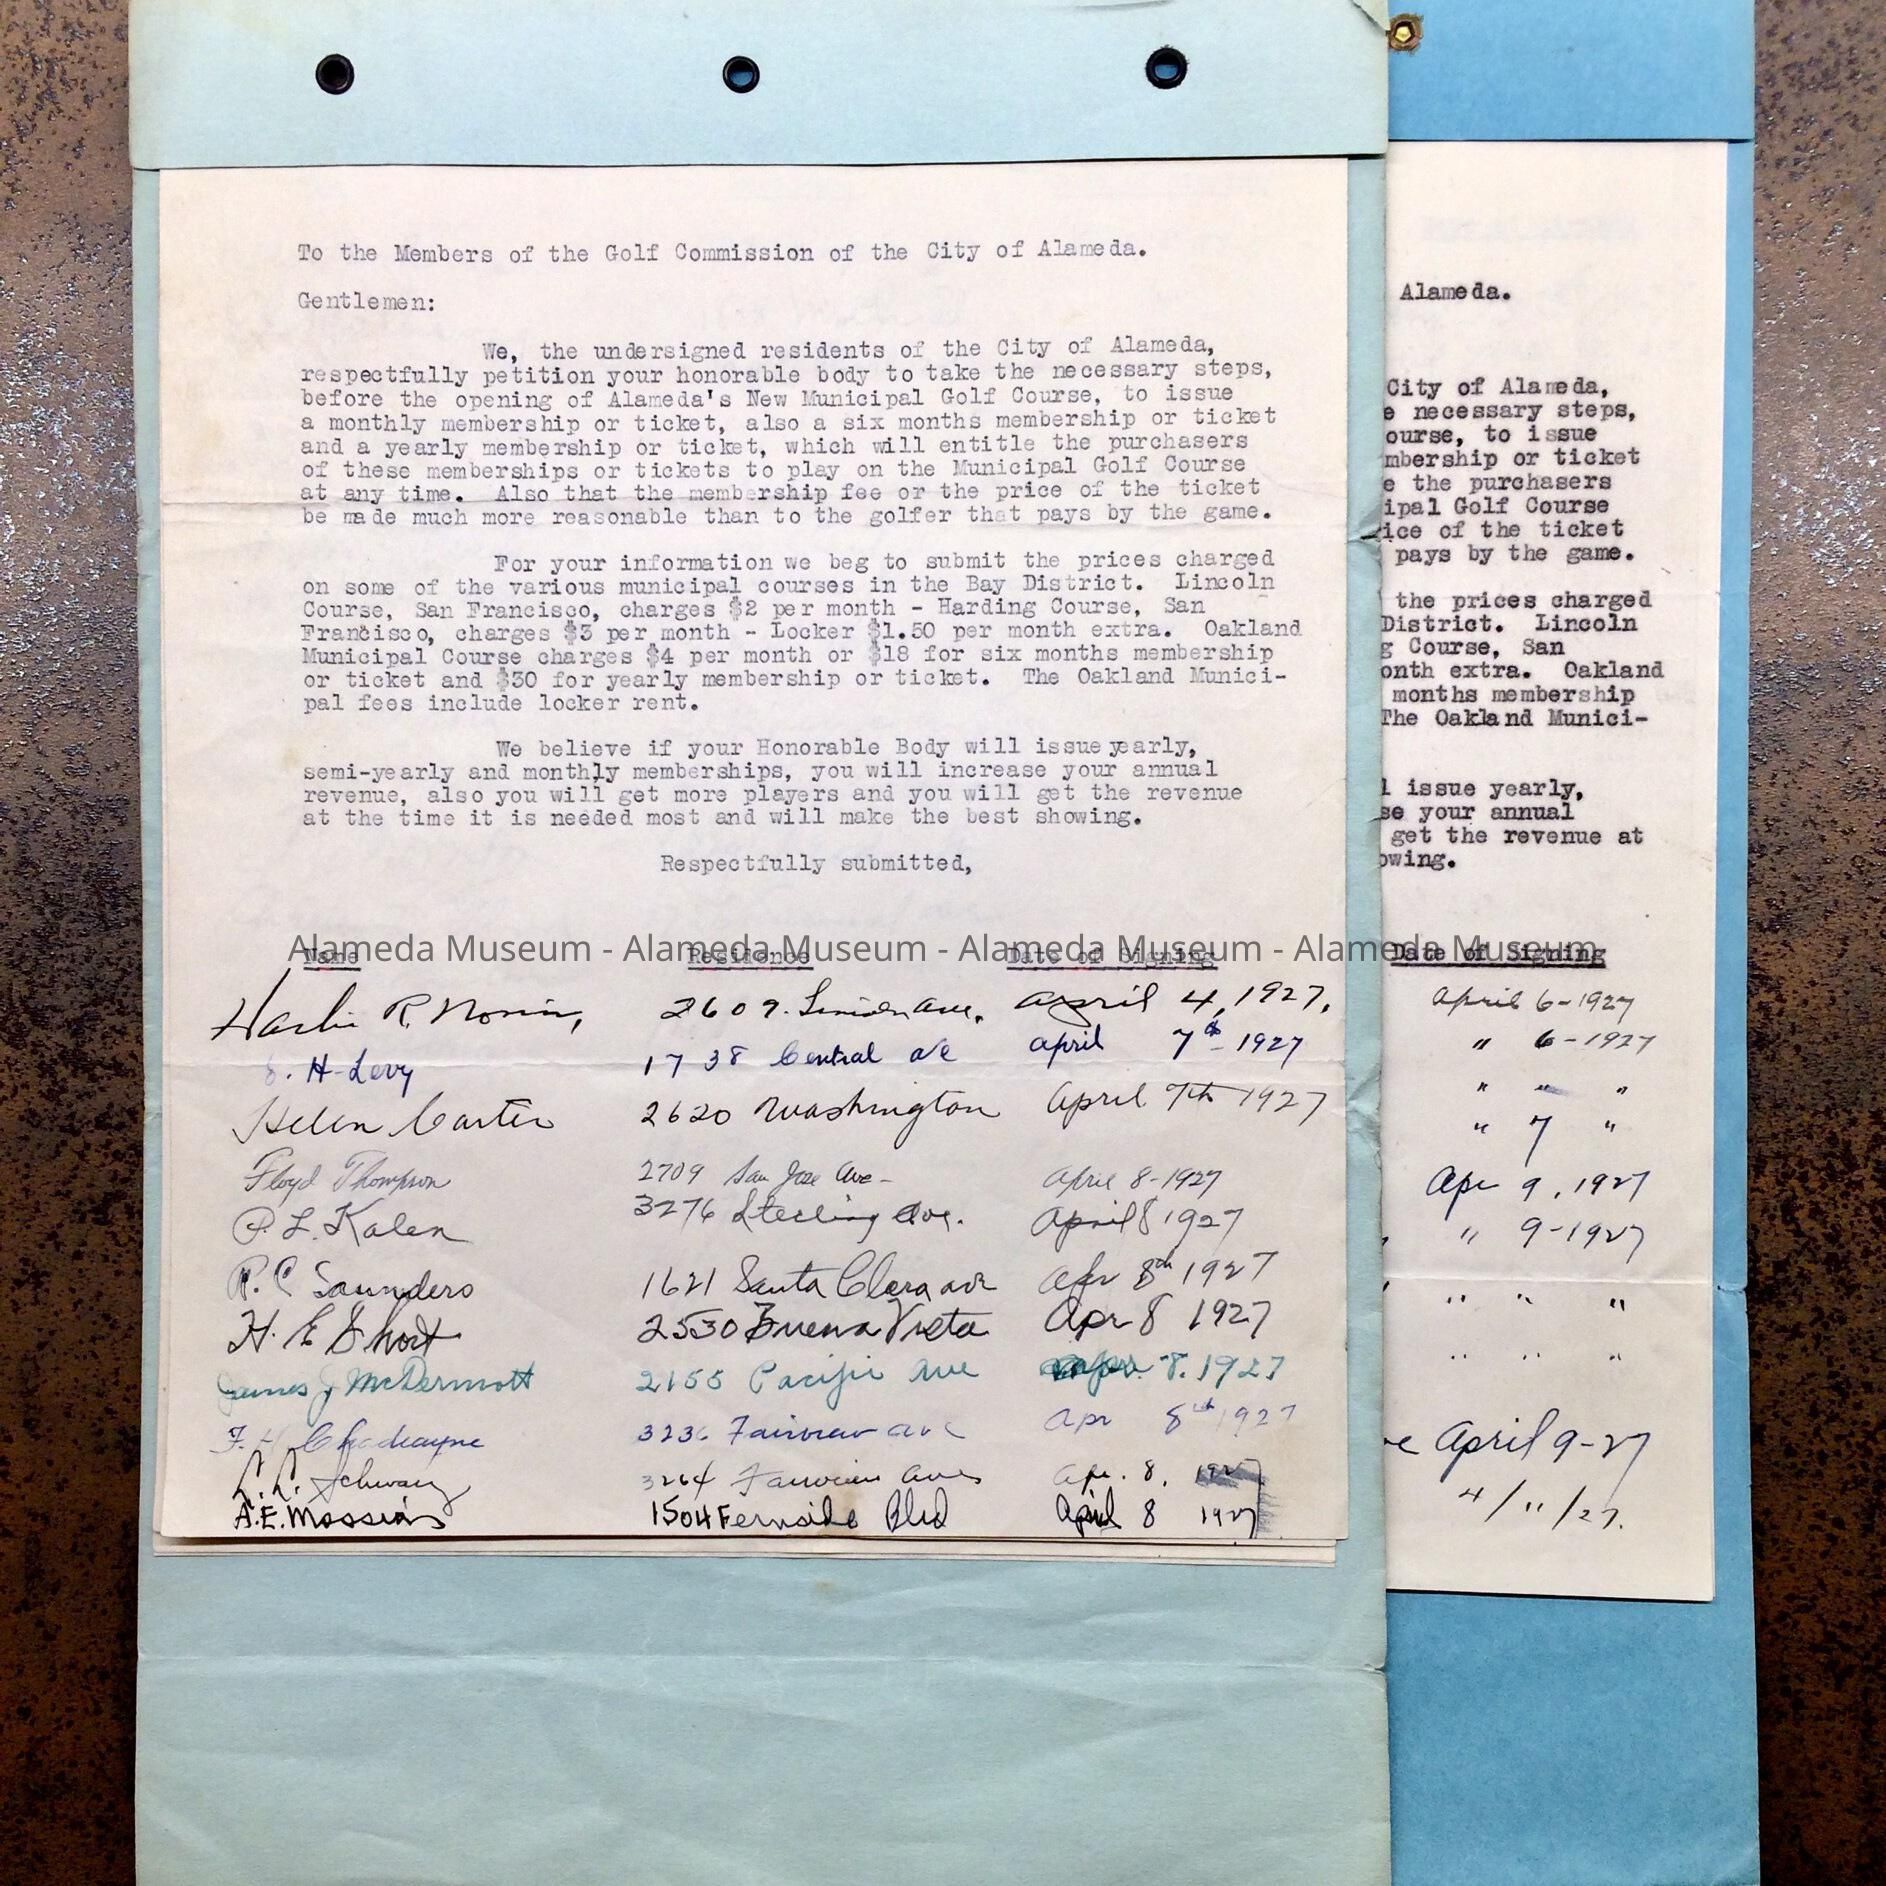 To the Members of the Golf Commission of the City of Alameda.
Gentlemen:
We, the undersigned residents of the City of Alameda,
respectfully petition your honorable body to take the necessary steps,
before the opening of Alameda's New Municipal Golf Course, to issue
a monthly membership or ticket, also a six months membership or ticket
and a yearly membership or ticket, which will entitle the purchasers
of these memberships or tickets to play on the Municipal Golf Course
at any time. Also that the membership fee or the price of the ticket
be made much more reasonable than to the golfer that pays by the game.
For your information we beg to submit the prices charged
on some of the various municipal courses in the Bay District. Lincoln
Course, San Francisco, charges $2 per month - Harding Course, San
Francisco, charges $3 per month - Locker $1.50 per month extra. Oakland
Municipal Course charges $4 per month or $18 for six months membership
or ticket and $30 for yearly membership or ticket. The Oakland Munici-
pal fees include locker rent.
We believe if your Honorable Body will issue yearly,
semi-yearly and monthly memberships, you will increase your annual
revenue, also you will get more players and you will get the revenue
at the time it is needed most and will make the best showing.
Respectfully submitted,
Alameda Museum - Alameda Museum - Alameda Museum - Alameda Museum
Name Residence Date of Signing
R. 2609 Ave. April 4, 1927.
H. Levy 1738 Central ave April 7th 1927
Helen Carter 2620 Washington April 7th 1927
Floyd Thompson 2709 San Jose Ave - April 8-1927
L. Kalen 3276 Sterling Ave. April 8 1927
R. C Saunders 1621 Santa Clara ave Apr 8th 1927
H. E Short 2530 Buena Vista Apr 8 1927
James J McDermott 2155 Pacific Ave Apr. 8. 1927
F. H Fairview ave Apr 8th 1927
3264 Fairview Ave Apr. 8. 1927
A.E. 1504 Fernside Blvd April 8 1927
Alameda.
City of Alameda,
e necessary steps,
ourse, to issue
mbership or ticket
e the purchasers
ipal Golf Course
ice of the ticket
pays by the game.
the prices charged
District. Lincoln
g Course, San
onth extra. Oakland
months membership
The Oakland Munici-
l issue yearly,
se your annual
get the revenue at
owing.
Date of Signing
April 6-1927
" 6-1927
" " "
" 7 "
Apr 9, 1927
" 9-1927
" " "
" " "
April 9-27
4/11/27.